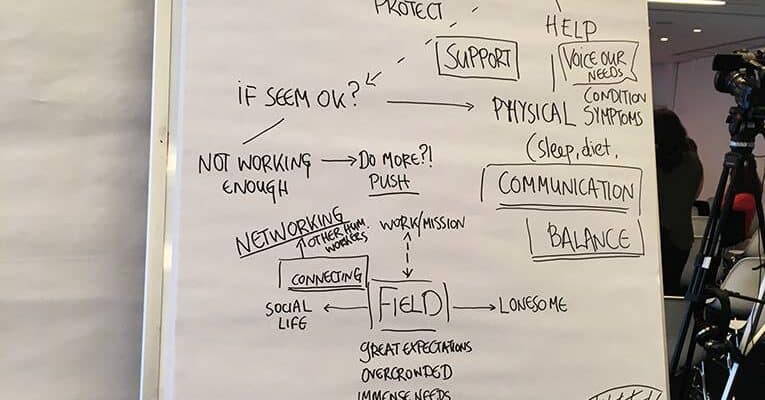 PROTECT
HELP
SUPPORT
VOICE OUR
NEEDS
IF SEEM OK?
PHYSICAL
CONDITION
SYMPTOMS
(sleep, diet,
NOT WORKING
ENOUGH
DO MORE?!
PUSH
COMMUNICATION
BALANCE
NETWORKING
OTHER HUM.
WORKERS
WORK/MISSION
CONNECTING
SOCIAL
LIFE
FIELD
LONESOME
GREAT EXPECTATIONS
OVERCRONDED
IMMENSE NEEDS